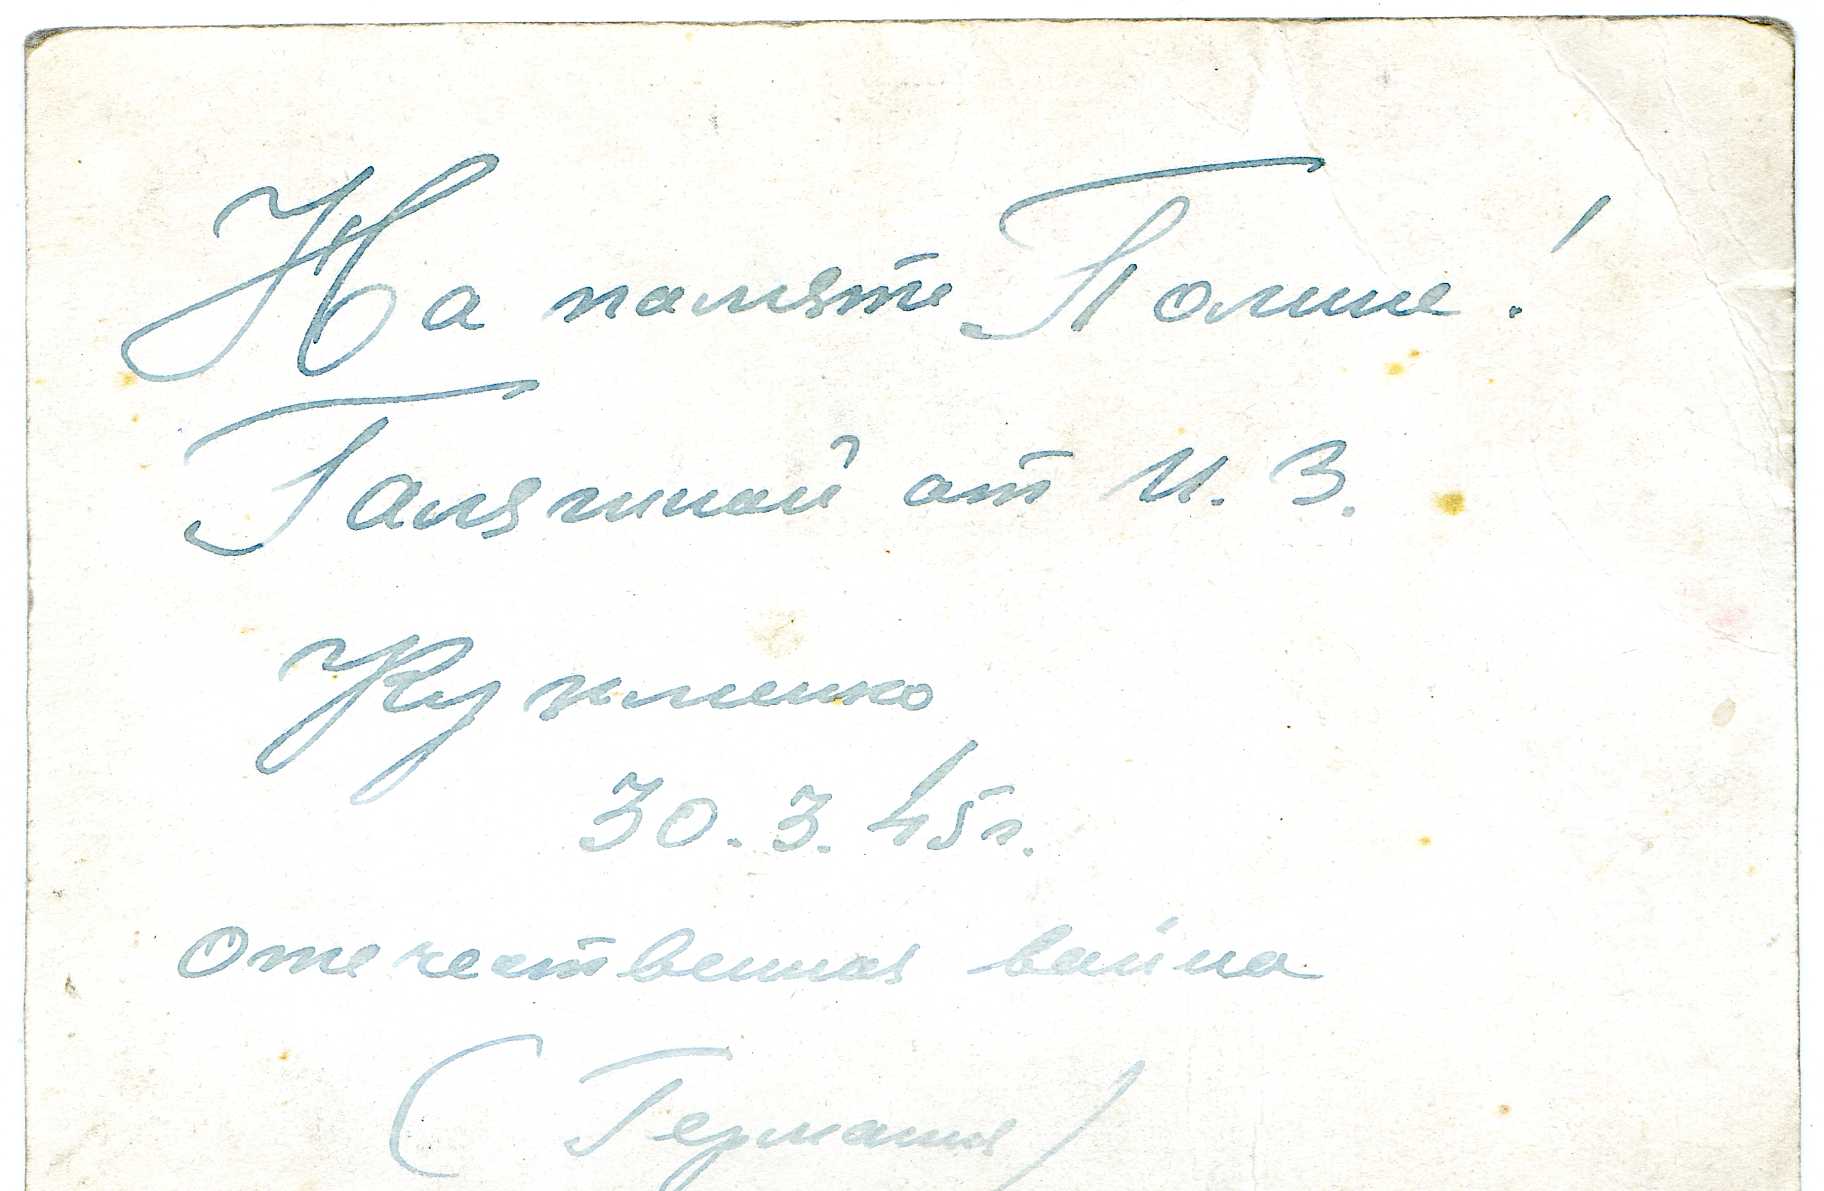 На памяте Полине!
от И. З.
Кузменко
30.3.45г.
Отечественная вайна
(Германия)